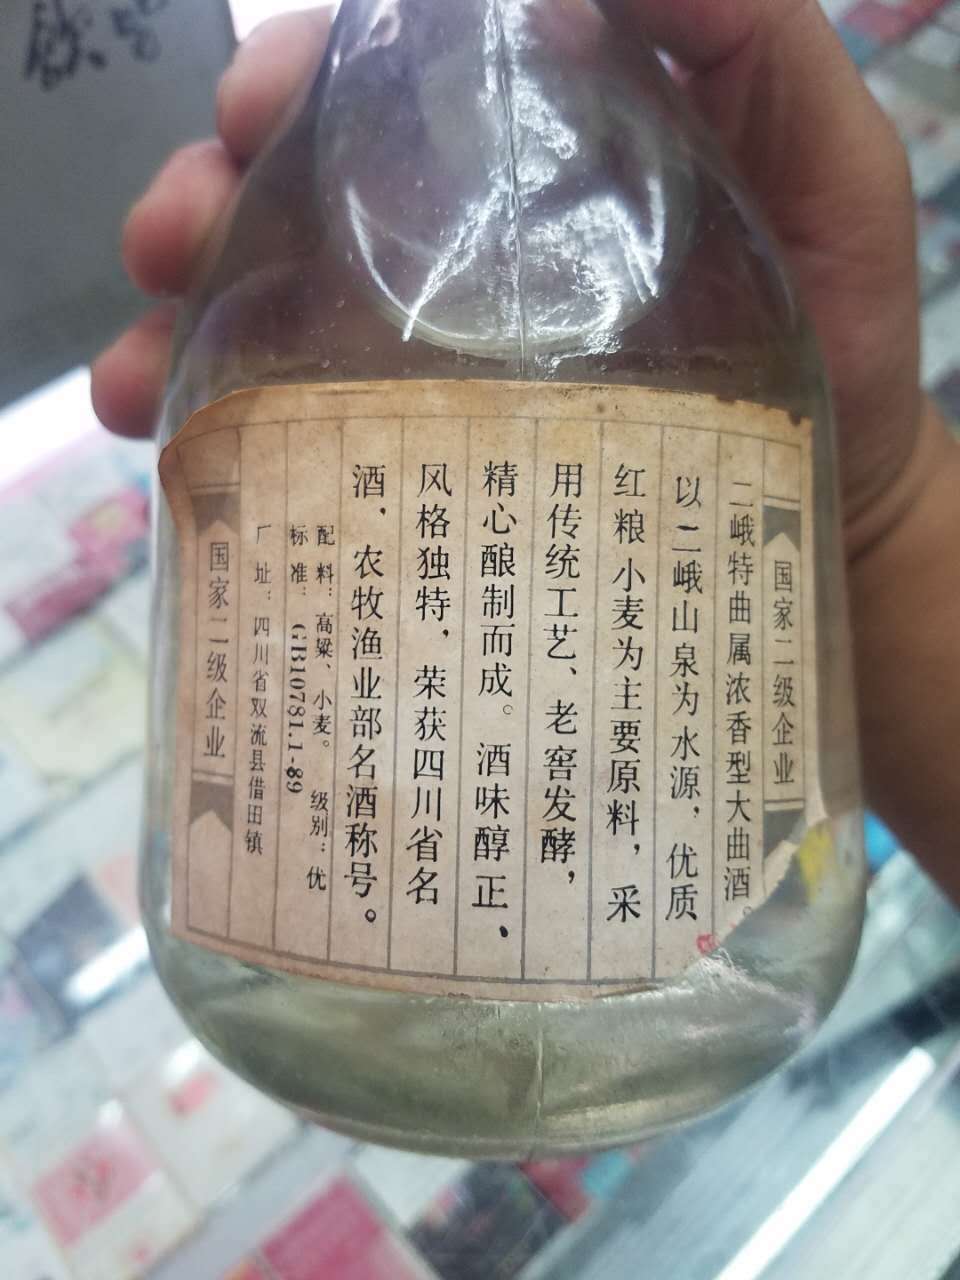 国家二级企业
二峨特曲属浓香型大曲酒。
以二峨山泉为水源，优质
红粮小麦为主要原料，采
用传统工艺、老窖发酵，
精心酿制而成。酒味醇正、
风格独特，荣获四川省名
酒，农牧渔业部名酒称号。
配料：高粱、小麦。 级别：优
标准：GB10781.1-89
厂址：四川省双流县借田镇
国家二级企业